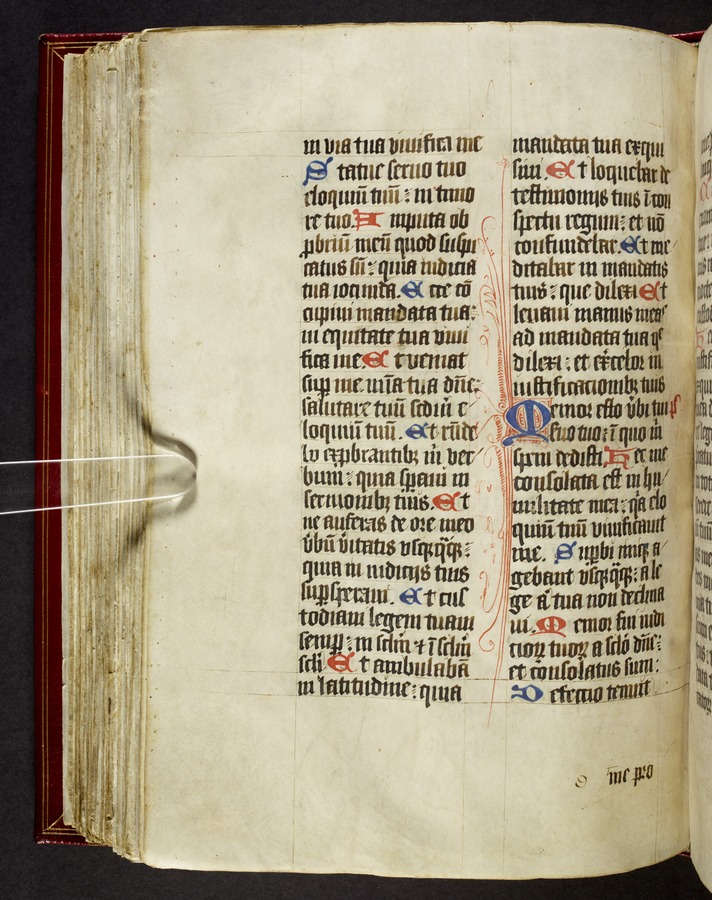 in via tua viuifica me
Statue seruo tuo
eloquiū tuū : in timo
re tuo. Amputa ob
ꝓbriū meū quod suspi
catus sū : quia iudicia
tua iocunda. Ecce cō
cupiui mandata tua :
in equitate tua viui
fica me. Et veniat
suꝑ me mīa tua dn̄e :
salutare tuū scdm̄ e
loquiū tuū. Et rn̄de
bo exꝑbrantibꝫ m̄ ver
bum : quia speraui in
sermonibꝫ tuis. Et
ne auferas de ore meo
v̄bū v̄itatis vsqꝫ q̄qꝫ :
quia in iudicijs tuis
suꝑsperaui. Et cus
todiam legem tuam
semꝑ : in sclm̄ ⁊ ī sclm̄
scli Et ambulabā
in latitudine : quia
mandata tua exqui
siui. Et loquebar de
testimonijs tuis ī con
spectu regum : et nō
confundebar. Et me
ditabar in mandatis
tuis : que dilexi Et
leuaui manus meas
ad mandata tua q̄
dilexi : et excebor in
iustificacionibꝫ tuis
Memor esto v̄bi tui s
eruo tuo : ī quo m̄
spem dedisti. Hec me
consolata est in hu
militate mea : q̄a elo
quiū tuū viuificauit
me. Suꝑbi iniq̄ a
gebant vsqꝫ q̄qꝫ : a le
ge ā tua non declina
ui. Memor fui iudi
ciorꝝ tuorꝝ a sclo dn̄e :
et consolatus sum :
Defectio tenuit
me pro